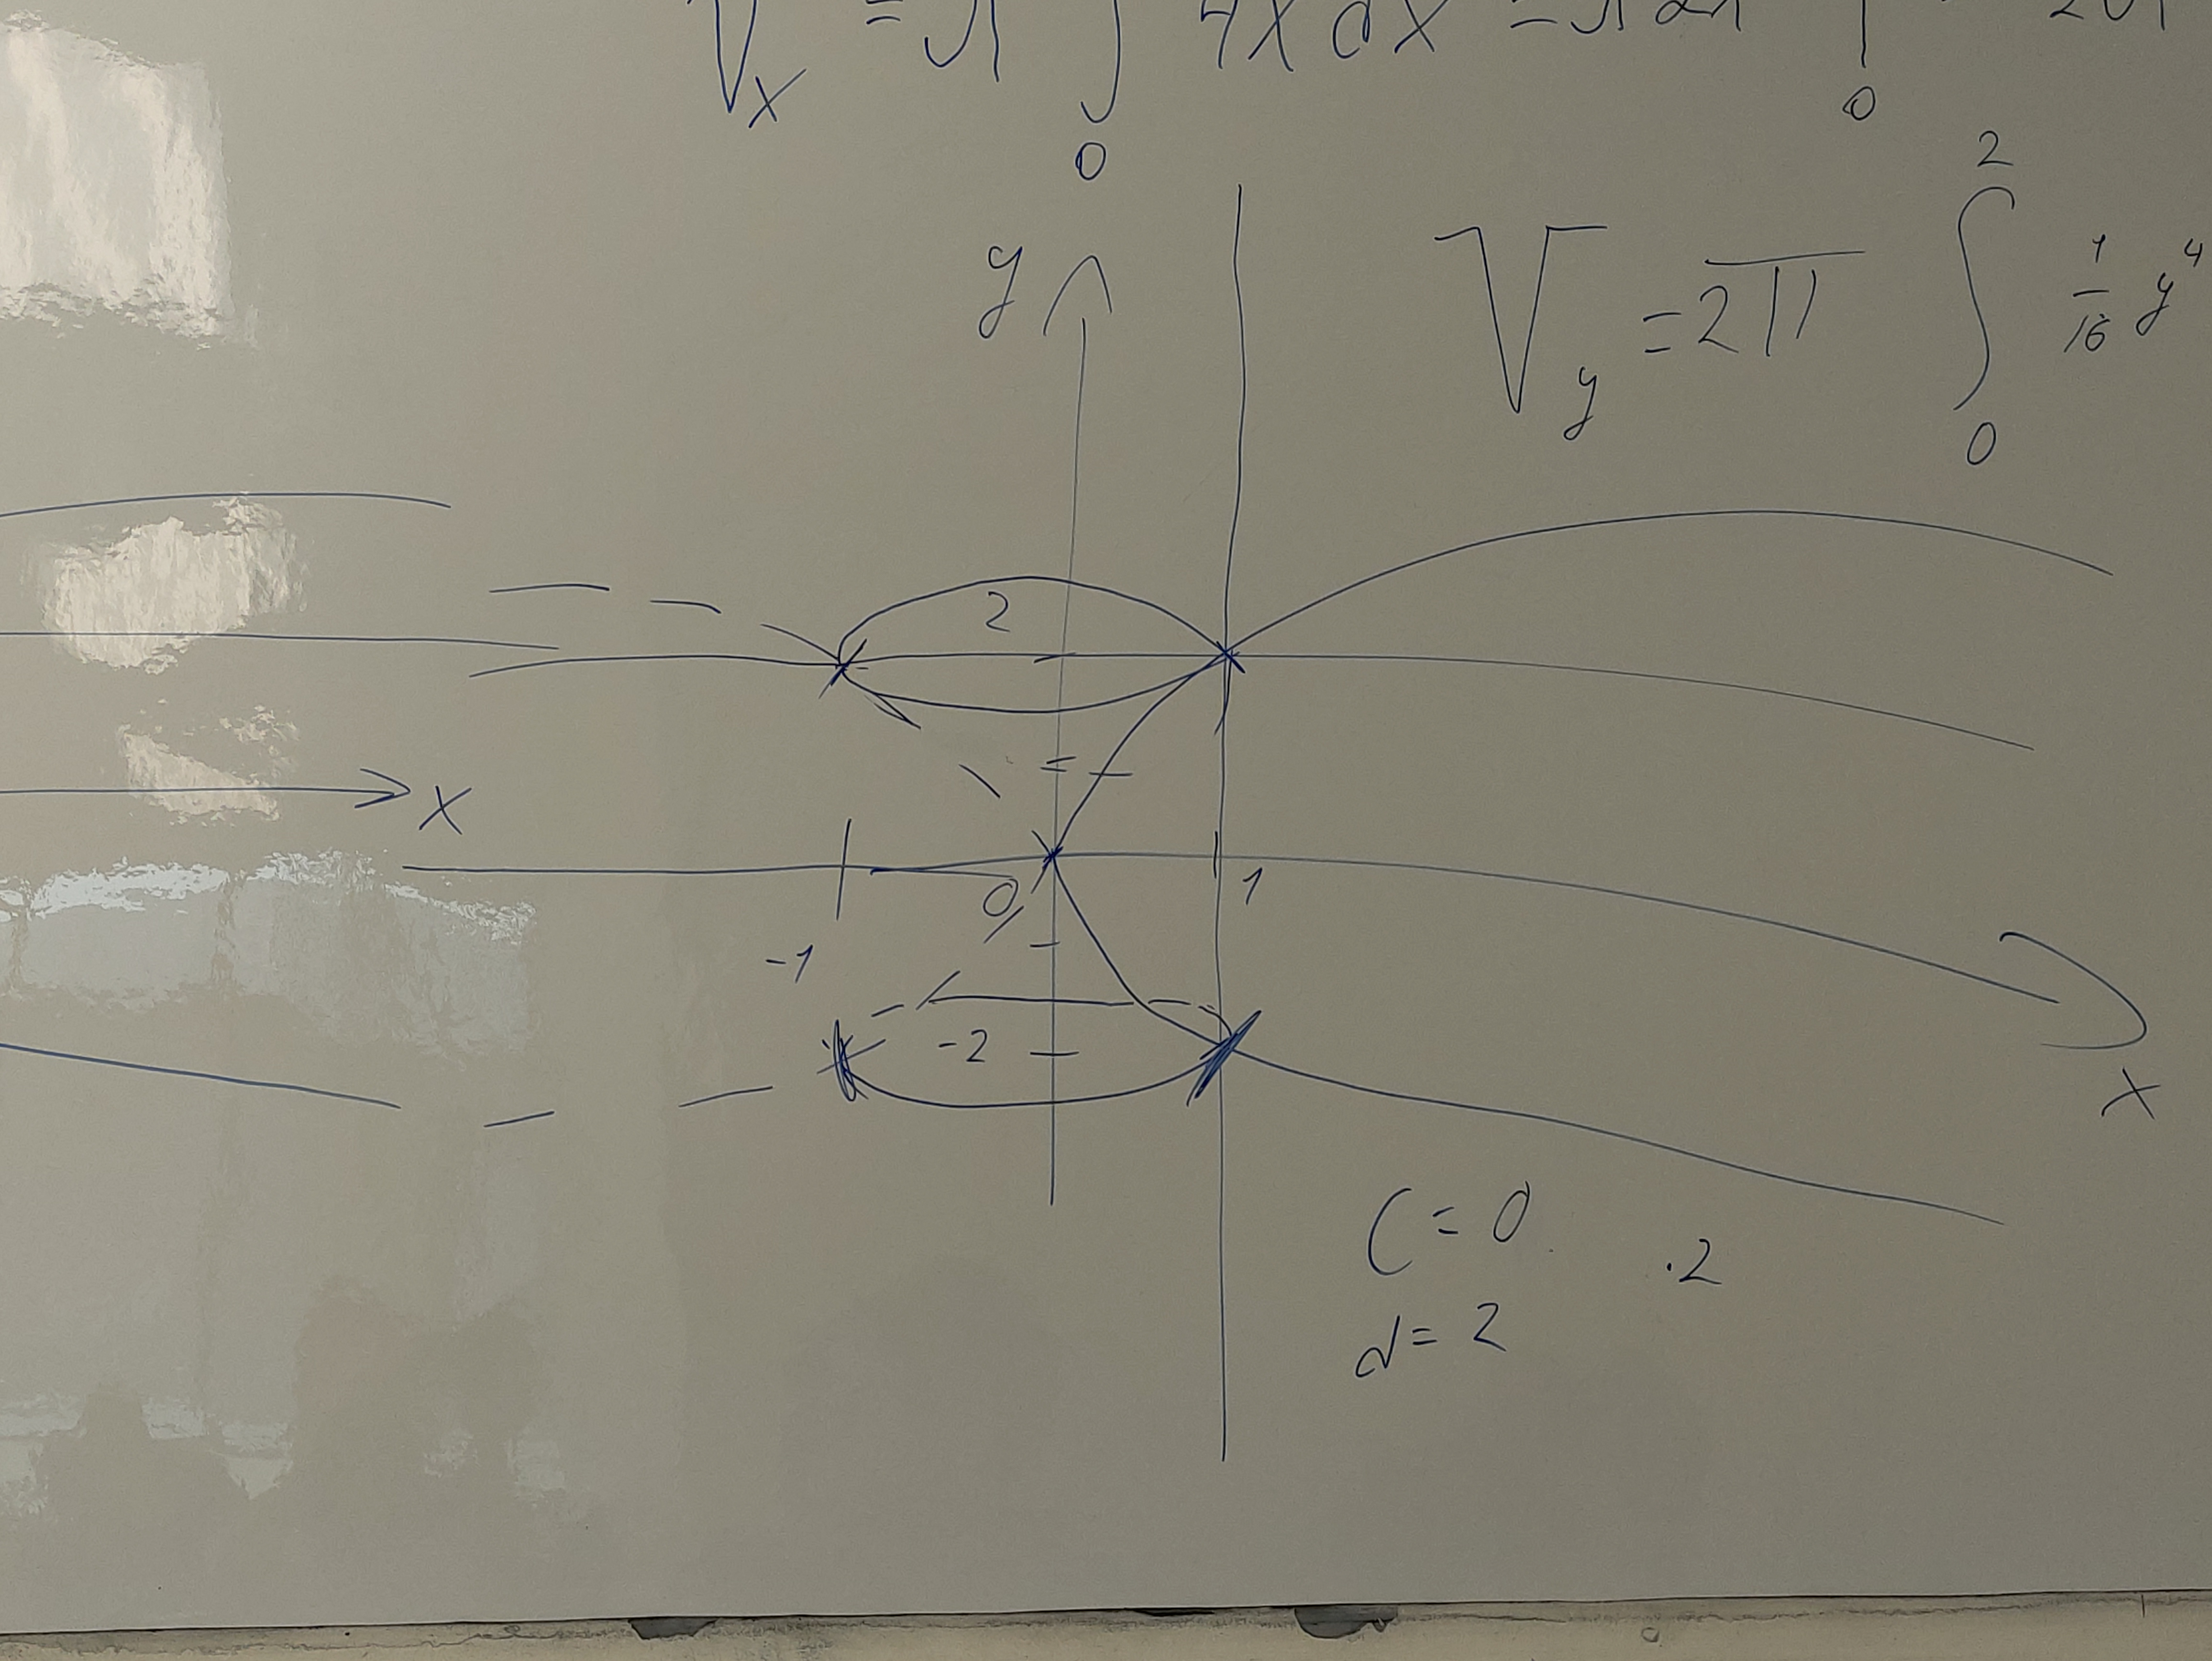 V_x = π ∫_0 4x dx = π 2x | _0
V_y = 2π ∫_0^2 1/16 y^4
y
2
x
0
1
-1
-2
x
C = 0 · 2
d = 2